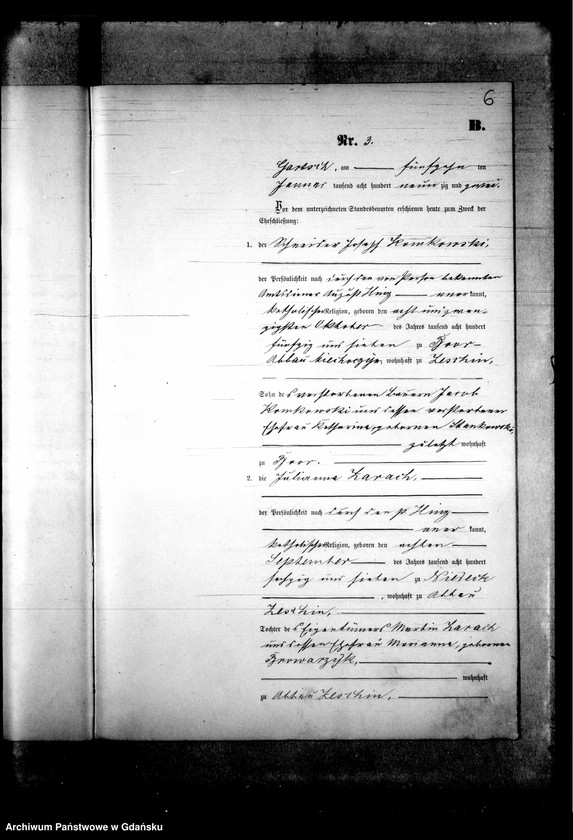 6
B.
Nr. 3.
Gartsch, am fünfzehn ten
Januar tausend acht hundert neun zig und zwei.
Vor dem unterzeichneten Standesbeamten erschienen heute zum Zweck der
Eheschließung:
1. der Schneider Joseph Komkowski,
der Persönlichkeit nach durch den von Person bekannten
Amtsdiener August Hing aner kannt,
katholischer Religion, geboren den acht und zwan-
zigsten Oktober des Jahres tausend acht hundert
fünfzig und sieben zu
Abbau wohnhaft zu Zeschin,
Sohn des verstorbenen Bauern Jacob
Komkowski und dessen verstorbener
Ehefrau Katharina, geborenen Stankowski,
zuletzt wohnhaft
zu
2. die Julianna Zarach,
der Persönlichkeit nach durch den p. Hing
aner kannt,
katholischer Religion, geboren den achten
September des Jahres tausend acht hundert
sechzig und sieben zu Niedeck
, wohnhaft zu Abbau
Zeschin,
Tochter des Eigentümers Martin Zarach
und dessen Ehefrau Marianna, geborenen
Browarzyk,
wohnhaft
zu Abbau Zeschin,
Archiwum Państwowe w Gdańsku